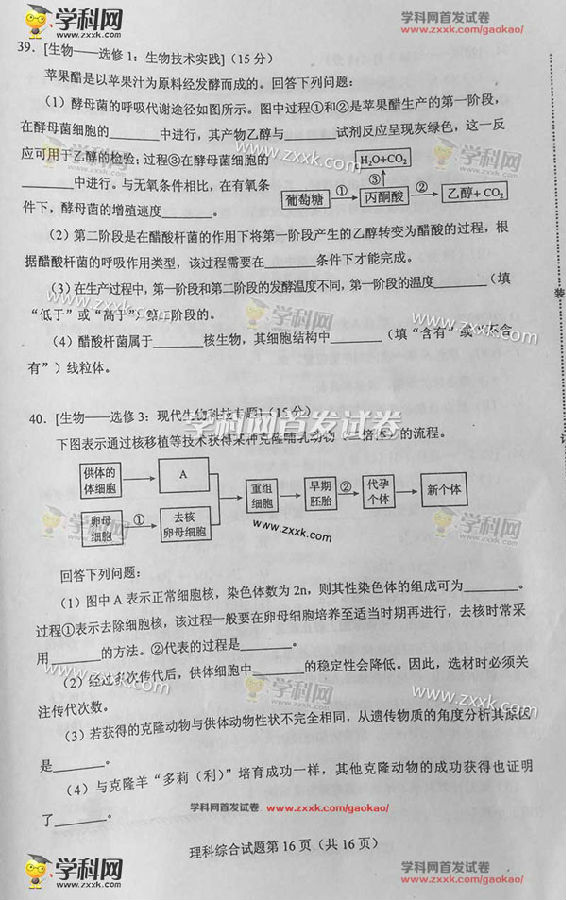 学科网
www.zxxk.com
学科网首发试卷
www.zxxk.com/gaokao/
39. [生物——选修1：生物技术实践]（15分）
苹果醋是以苹果汁为原料经发酵而成的。回答下列问题：
（1）酵母菌的呼吸代谢途径如图所示。图中过程①和②是苹果醋生产的第一阶段，
在酵母菌细胞的______中进行，其产物乙醇与______试剂反应呈现灰绿色，这一反
应可用于乙醇的检验；过程③在酵母菌细胞的
______中进行。与无氧条件相比，在有氧条
件下，酵母菌的增殖速度______。
H₂O+CO₂
③
葡萄糖 ① 丙酮酸 ② 乙醇+CO₂
（2）第二阶段是在醋酸杆菌的作用下将第一阶段产生的乙醇转变为醋酸的过程，根
据醋酸杆菌的呼吸作用类型，该过程需要在______条件下才能完成。
（3）在生产过程中，第一阶段和第二阶段的发酵温度不同，第一阶段的温度______（填
“低于”或“高于”）第二阶段的。
（4）醋酸杆菌属于______核生物，其细胞结构中______（填“含有”或“不含
有”）线粒体。
装
40. [生物——选修3：现代生物科技专题]（15分）
学科网首发试卷
下图表示通过核移植等技术获得某种克隆哺乳动物 培 的流程。
供体的体细胞 A
卵母细胞 ① 去核卵母细胞
重组细胞 早期胚胎 ② 代孕个体 新个体
www.zxxk.com
回答下列问题：
（1）图中A表示正常细胞核，染色体数为2n，则其性染色体的组成可为______。
过程①表示去除细胞核，该过程一般要在卵母细胞培养至适当时期再进行，去核时常采
用______的方法。②代表的过程是______。
（2）经过多次传代后，供体细胞中______的稳定性会降低。因此，选材时必须关
注传代次数。
（3）若获得的克隆动物与供体动物性状不完全相同，从遗传物质的角度分析其原因
是______。
（4）与克隆羊“多莉（利）”培育成功一样，其他克隆动物的成功获得也证明
了______。
学科网首发试卷 www.zxxk.com/gaokao/
理科综合试题第16页（共16页）
学科网
www.zxxk.com
学科网首发试卷
www.zxxk.com/gaokao/